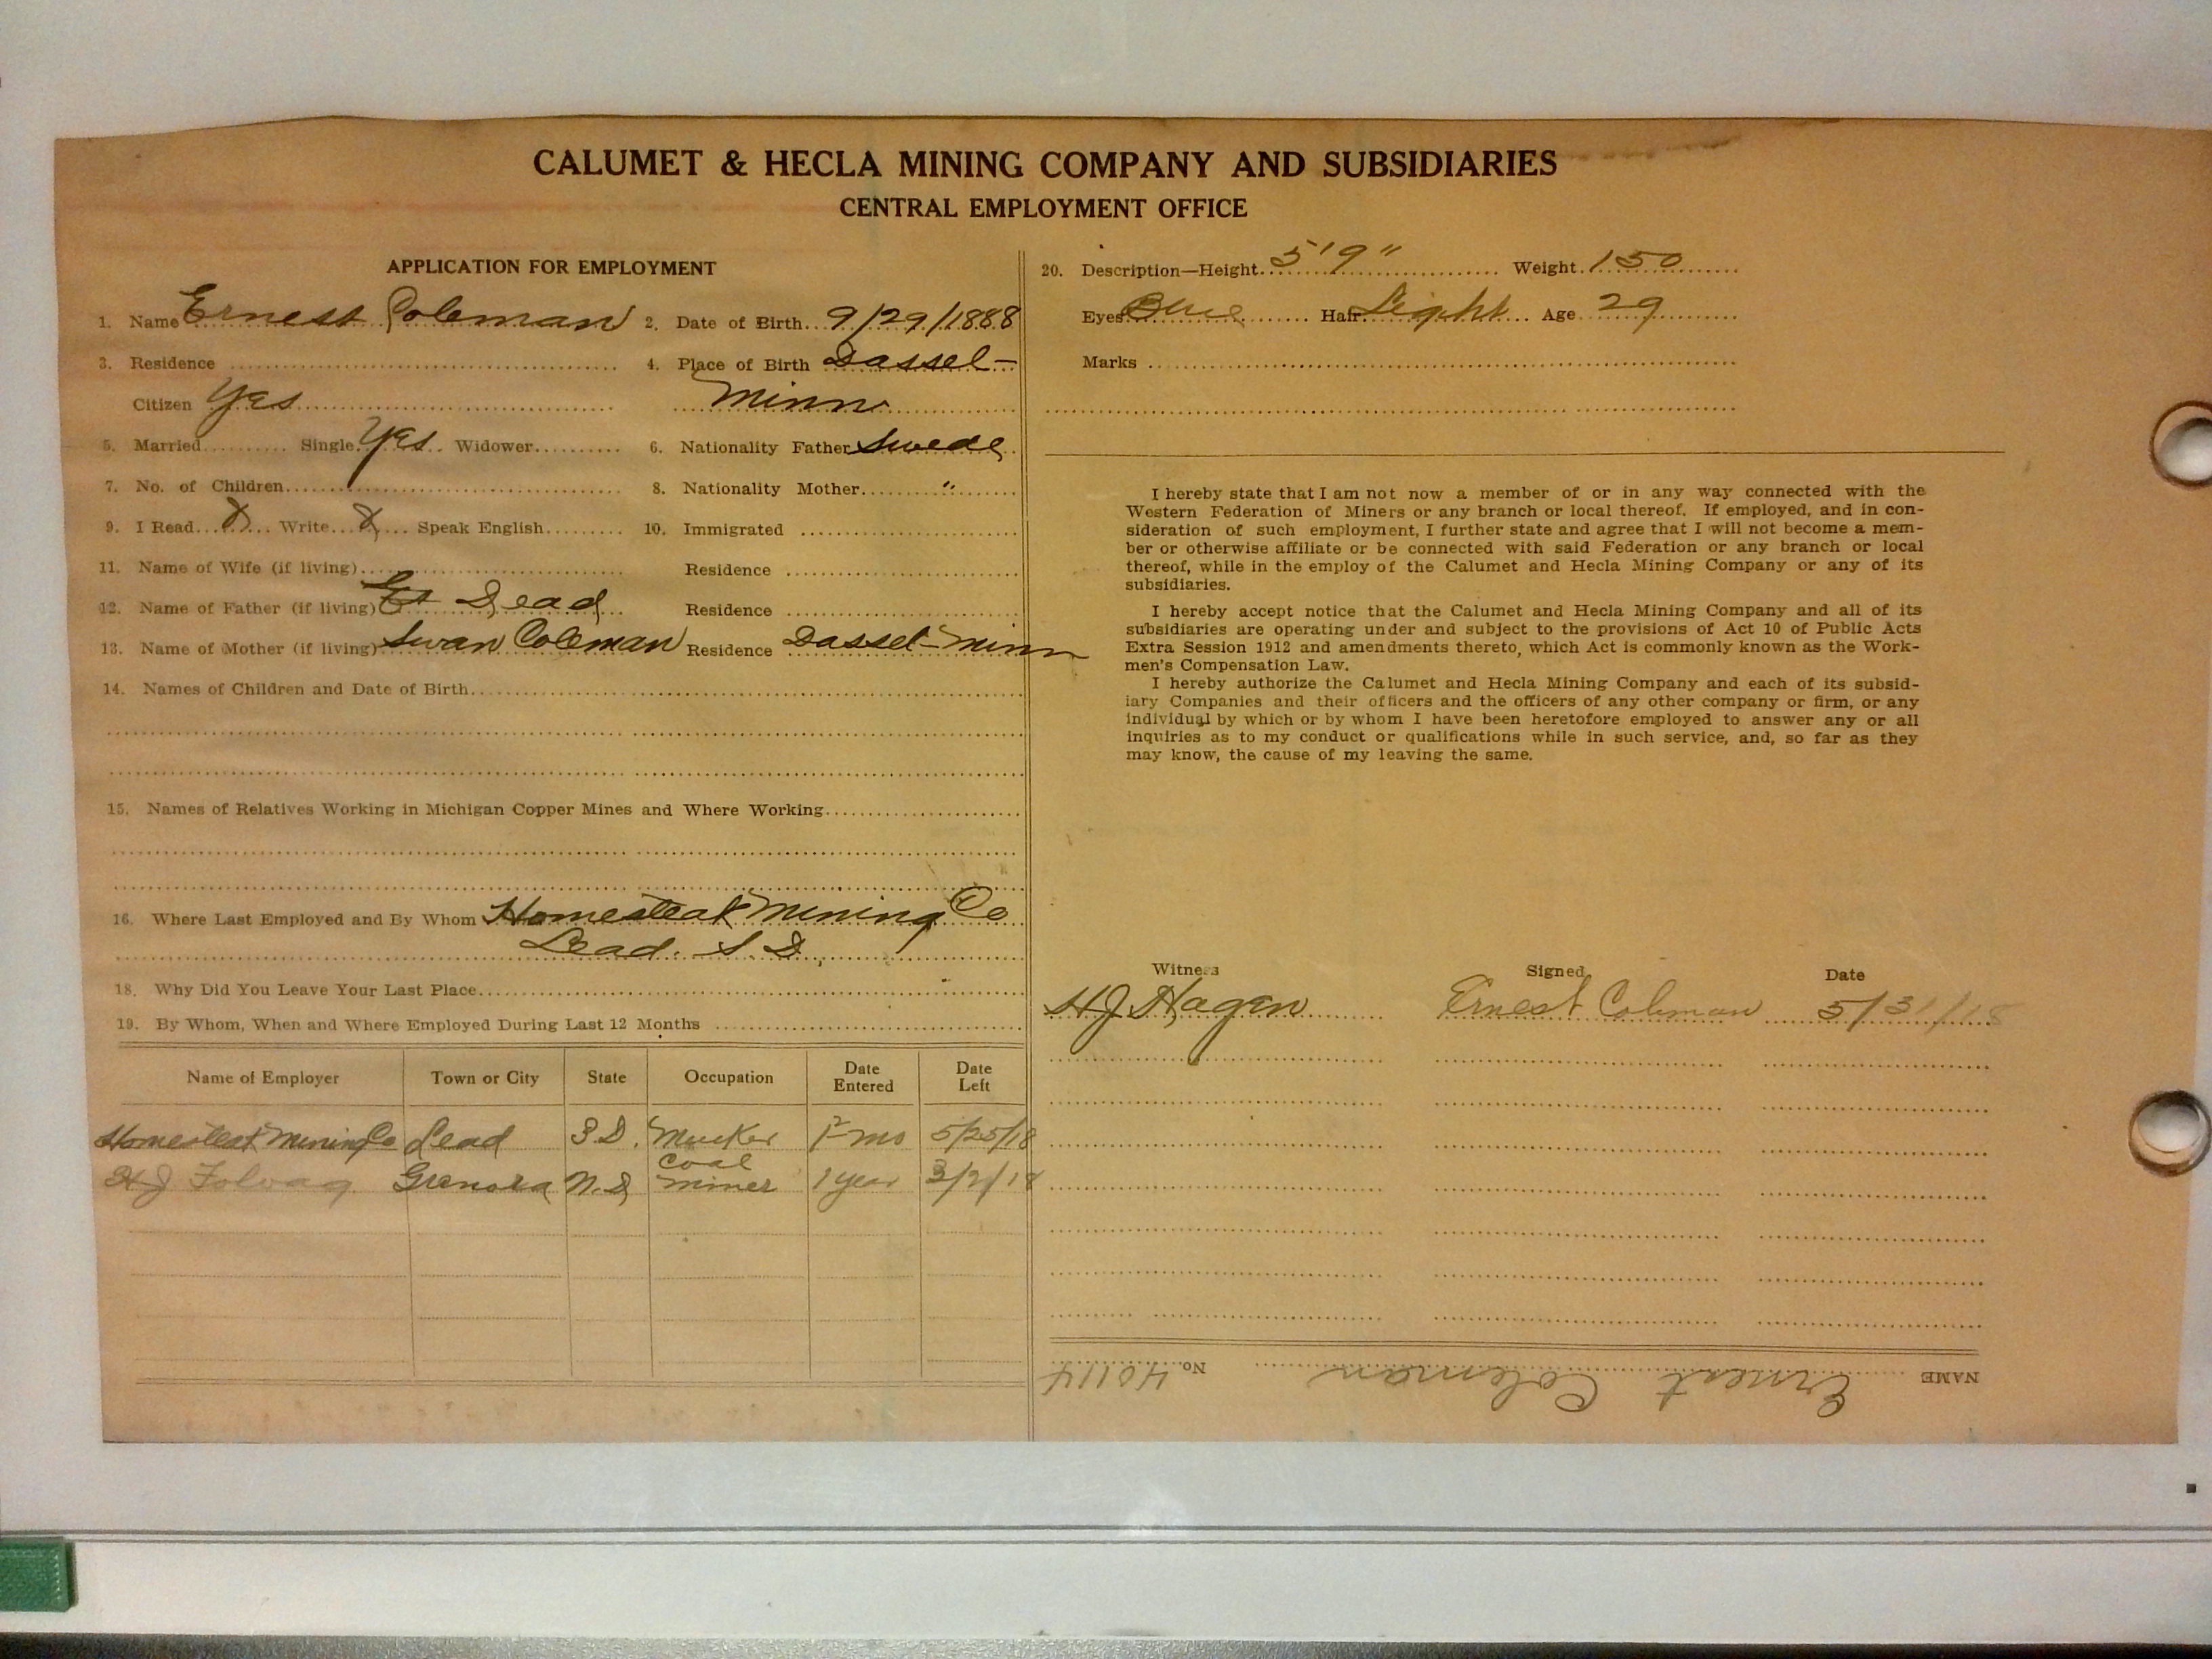 CALUMET & HECLA MINING COMPANY AND SUBSIDIARIES
CENTRAL EMPLOYMENT OFFICE
APPLICATION FOR EMPLOYMENT
1. Name Ernest Coleman 2. Date of Birth 9/29/1888
3. Residence 4. Place of Birth Dassel-
Citizen Yes Minn
5. Married Single Yes Widower 6. Nationality Father Swede
7. No. of Children 8. Nationality Mother "
9. I Read Write Speak English 10. Immigrated
11. Name of Wife (if living) Residence
12. Name of Father (if living) Dead Residence
13. Name of Mother (if living) Swan Coleman Residence Dassel-Minn
14. Names of Children and Date of Birth
15. Names of Relatives Working in Michigan Copper Mines and Where Working
16. Where Last Employed and By Whom Homesteak Mining Co
Lead. S.D.
18. Why Did You Leave Your Last Place
19. By Whom, When and Where Employed During Last 12 Months
Name of Employer Town or City State Occupation Date Entered Date Left
Homesteak Mining Co Lead S.D. Mucker 2 mo 5/25/18
H J Grenora N.D coal miner 1 year 3/2/18
20. Description—Height 5'9" Weight 150
Eyes Blue Hair Light Age 29
Marks
I hereby state that I am not now a member of or in any way connected with the
Western Federation of Miners or any branch or local thereof. If employed, and in con-
sideration of such employment, I further state and agree that I will not become a mem-
ber or otherwise affiliate or be connected with said Federation or any branch or local
thereof, while in the employ of the Calumet and Hecla Mining Company or any of its
subsidiaries.
I hereby accept notice that the Calumet and Hecla Mining Company and all of its
subsidiaries are operating under and subject to the provisions of Act 10 of Public Acts
Extra Session 1912 and amendments thereto, which Act is commonly known as the Work-
men's Compensation Law.
I hereby authorize the Calumet and Hecla Mining Company and each of its subsid-
iary Companies and their officers and the officers of any other company or firm, or any
individual by which or by whom I have been heretofore employed to answer any or all
inquiries as to my conduct or qualifications while in such service, and, so far as they
may know, the cause of my leaving the same.
Witness Signed Date
H J Hagen Ernest Coleman 5/31/18
NAME Ernest Coleman No. 40114